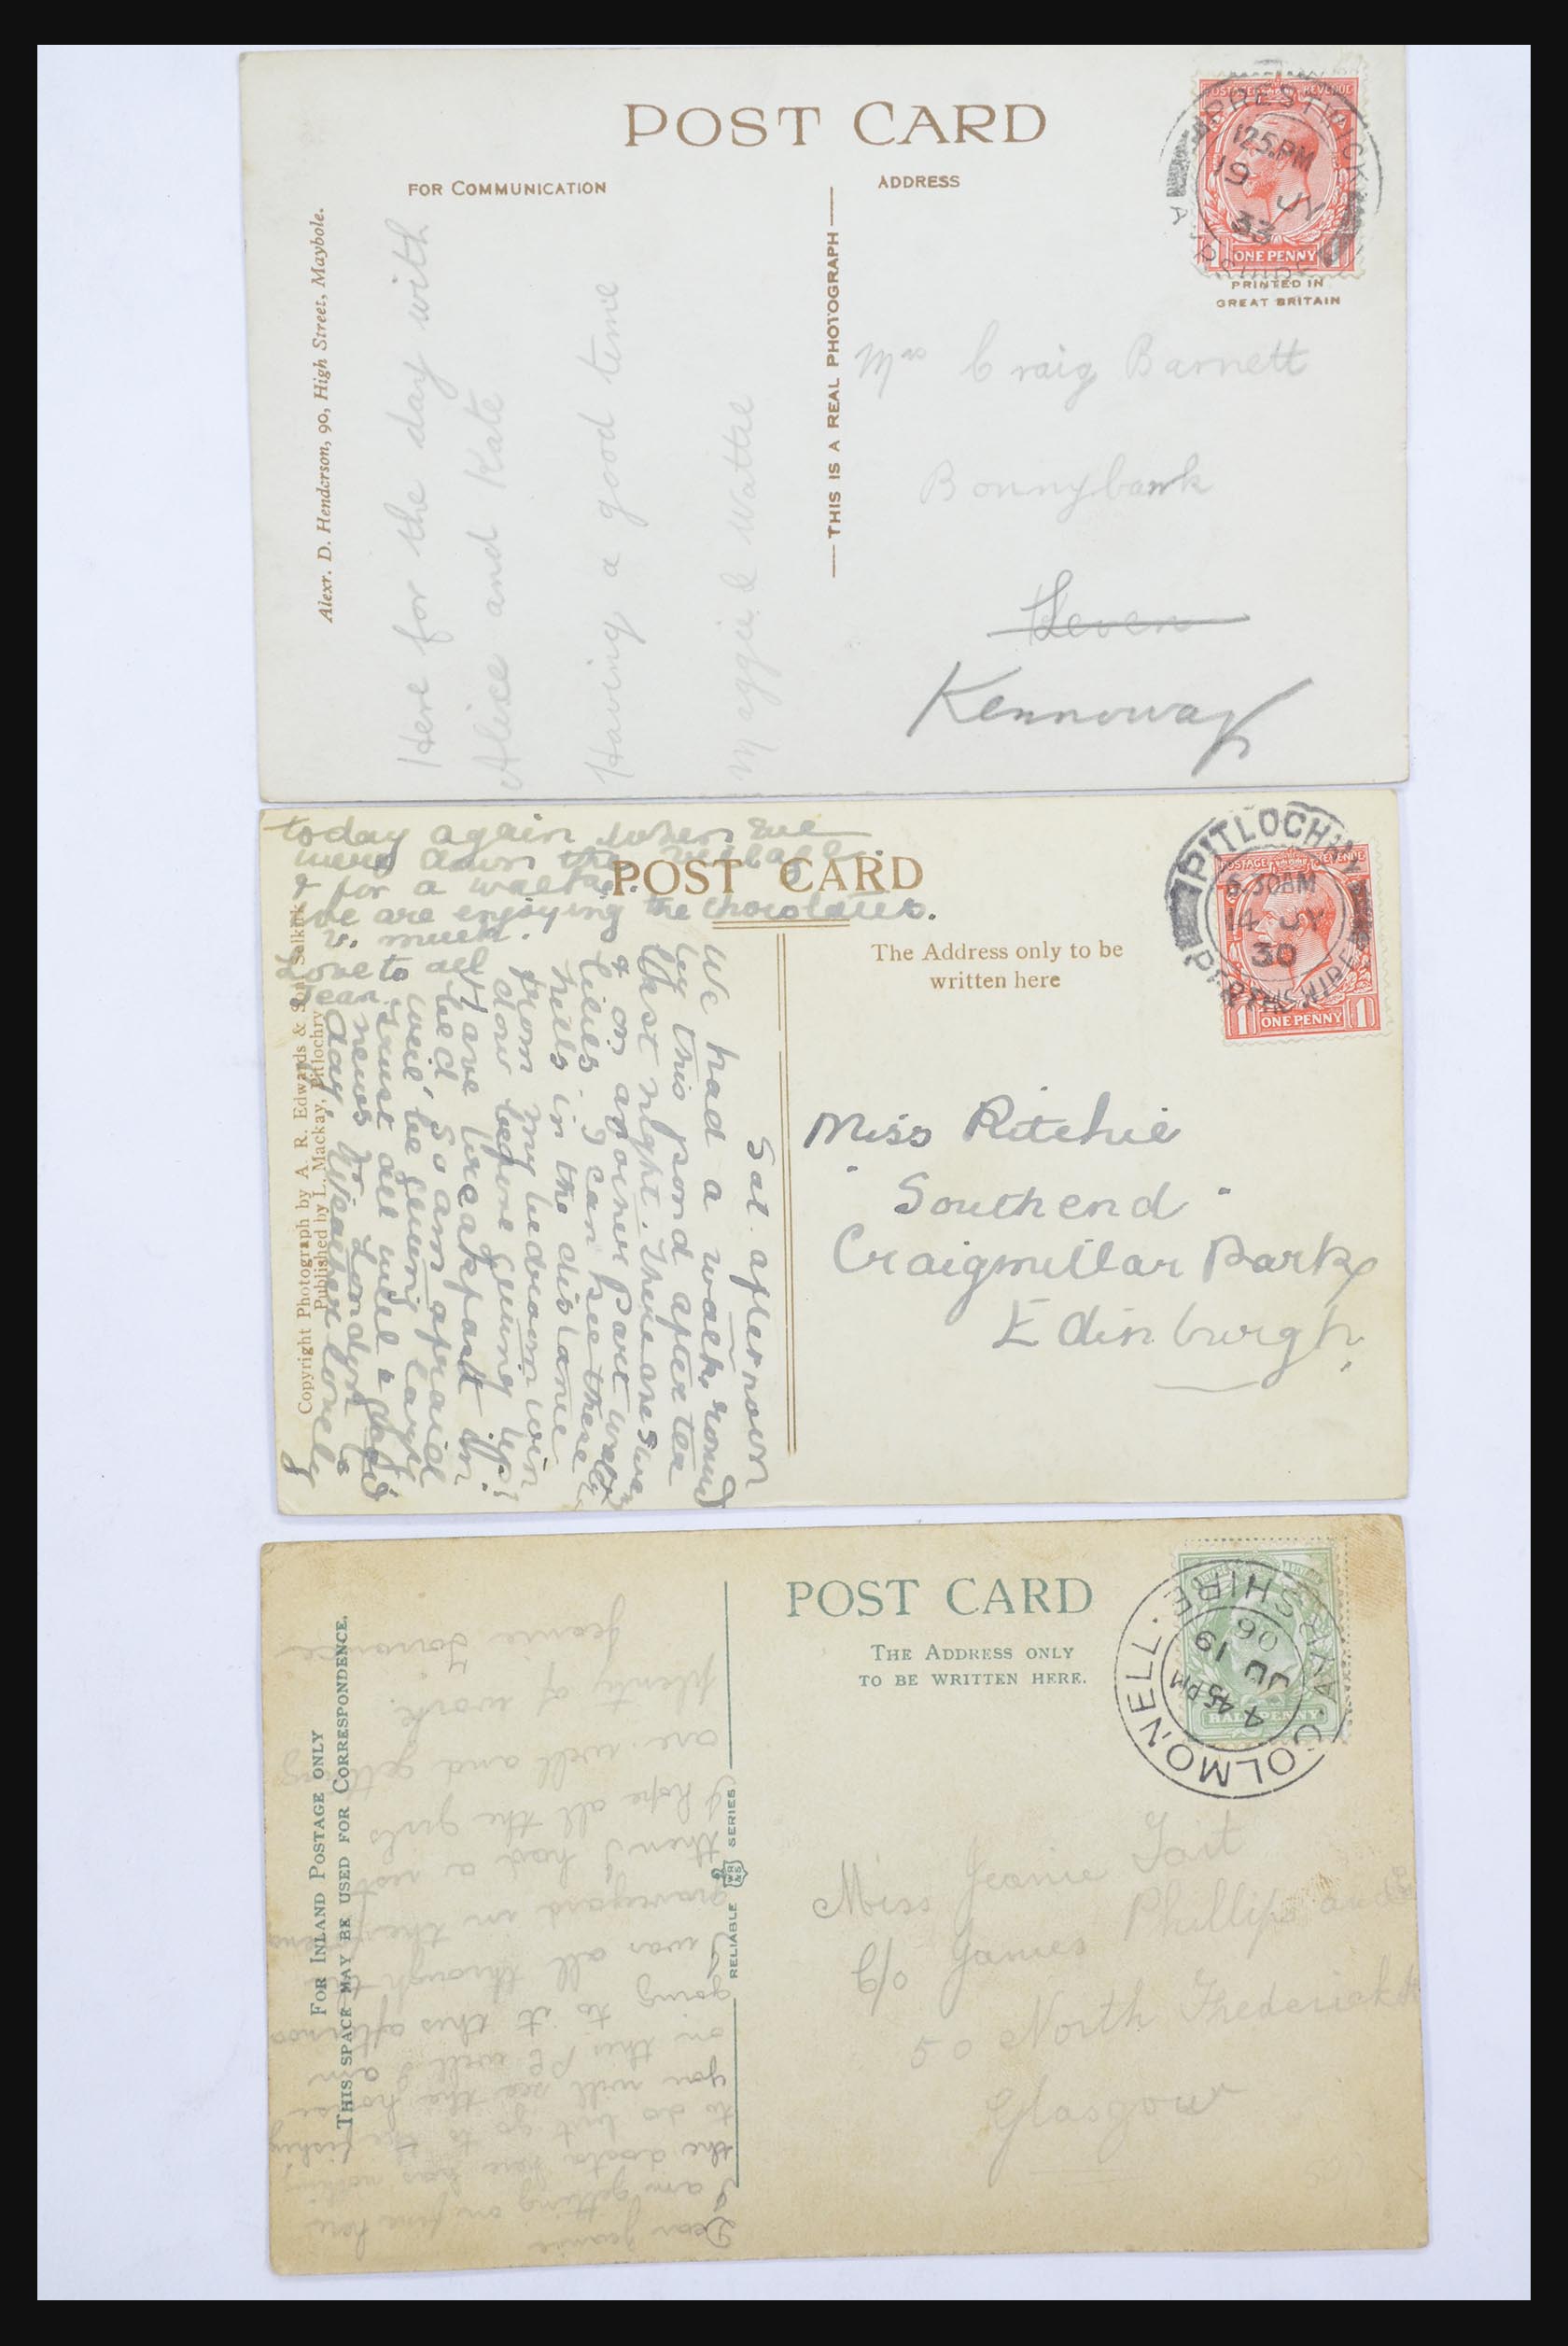 POST CARD
FOR COMMUNICATION
ADDRESS
Alexr. D. Henderson, 90, High Street, Maybole.
THIS IS A REAL PHOTOGRAPH
POSTAGE REVENUE
ONE PENNY
PRESTWICK
1 25 PM
19 JY
33
AYRSHIRE
PRINTED IN
GREAT BRITAIN
Here for the day with
Alice and Kate
Having a good time
Maggie & Wattie
Mrs Craig Barnett
Bonnybank
Leven
Kennoway
today again when we
were down the village
& for a walk.
We are enjoying the chocolates.
v. much.
Love to all
Jean.
POST CARD
The Address only to be
written here
Copyright Photograph by A. R. Edwards & Son, Selkirk
Published by L. Mackay, Pitlochry
POSTAGE REVENUE
1 ONE PENNY 1
PITLOCHRY
6.30 PM
14 JY
30
PERTHSHIRE
Sat. afternoon
We had a walk round
by this pond after tea
last night. There are swe
on another part water
lilies. I can see there
hills in the distance
from my bedroom win
dow before getting up!
Have breakfast in
bed so am afraid
will be getting lazy
Trust all well & good
news from London is
day. Weather lovely
Miss Ritchie
Southend
Craigmillar Park
Edinburgh.
POST CARD
THE ADDRESS ONLY
TO BE WRITTEN HERE.
FOR INLAND POSTAGE ONLY
THIS SPACE MAY BE USED FOR CORRESPONDENCE.
RELIABLE SERIES
WR & S
HALFPENNY
COLMONELL. AYRSHIRE
4 45 PM
JU 19
06
Dear Jeanie
I am getting on fine here
the doctor here has nothing
to do but go to the fishing
you will see the house
on this PC well I am
going to it this afternoon
I was all through the
graveyard in the
then I had a rest
I hope all the girls
are well and getting
plenty of work.
Jeanie Torrance
Miss Jeanie Tait
C/o James Phillips and
50 North Frederick St
Glasgow